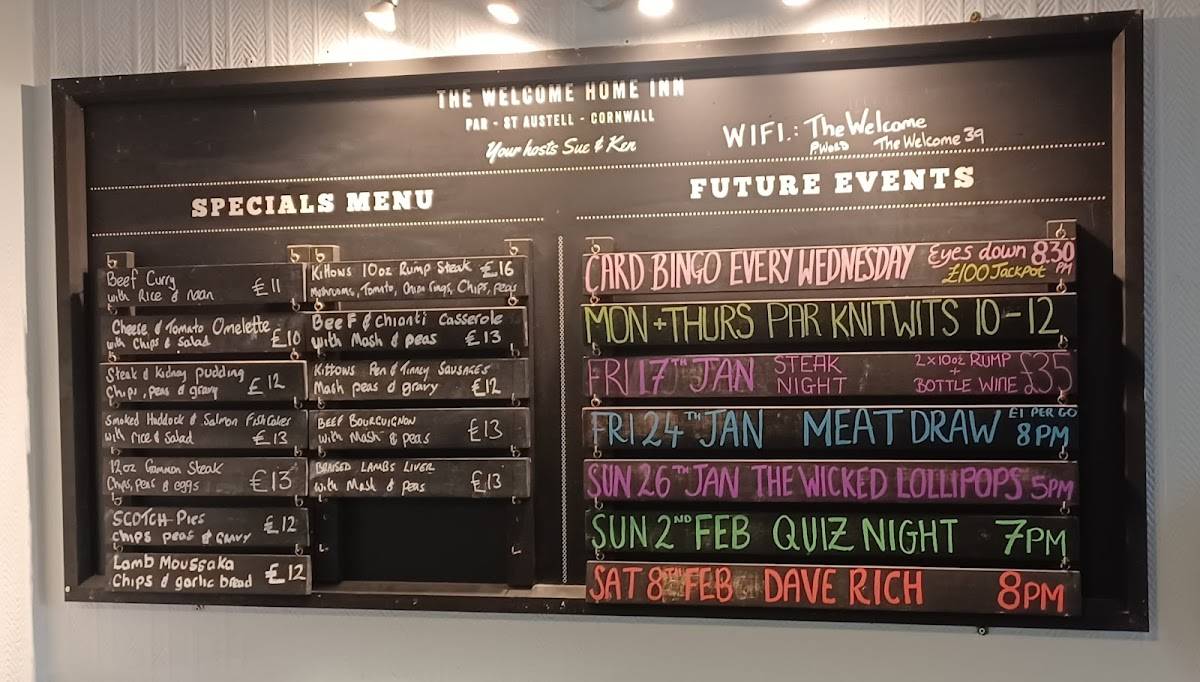 THE WELCOME HOME INN
PAR - ST AUSTELL - CORNWALL
Your hosts Sue & Ken
WIFI.: The Welcome
PWORD The Welcome 39
SPECIALS MENU
Beef Curry
with Rice & naan £11
Cheese & Tomato Omelette
with Chips & Salad £10
Steak & Kidney Pudding
Chips, peas & gravy £12
Smoked Haddock & Salmon FishCakes
with rice & Salad £13
12oz Gammon Steak
Chips, peas & eggs £13
SCOTCH Pies
Chips peas & GRAVY £12
Lamb Moussaka
Chips & garlic bread £12
Kittows 10oz Rump Steak £16
Mushrooms, Tomato, Onion rings, Chips, peas
Beef & Chianti Casserole
with Mash & peas £13
Kittows Pen & Tinney Sausages
Mash peas & gravy £12
BEEF BOURGUIGNON
with Mash & peas £13
BRAISED LAMBS LIVER
with Mash & peas £13
FUTURE EVENTS
CARD BINGO EVERY WEDNESDAY Eyes down 8.30 PM
£100 Jackpot
MON + THURS PAR KNITWITS 10-12
FRI 17TH JAN STEAK NIGHT 2 x 10oz RUMP + BOTTLE WINE £35
FRI 24TH JAN MEAT DRAW £1 PER GO 8PM
SUN 26TH JAN THE WICKED LOLLIPOPS 5PM
SUN 2ND FEB QUIZ NIGHT 7PM
SAT 8TH FEB DAVE RICH 8PM